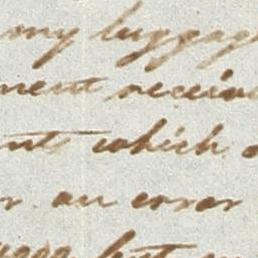 my luggag
ment receiv
nts which
r an error
but